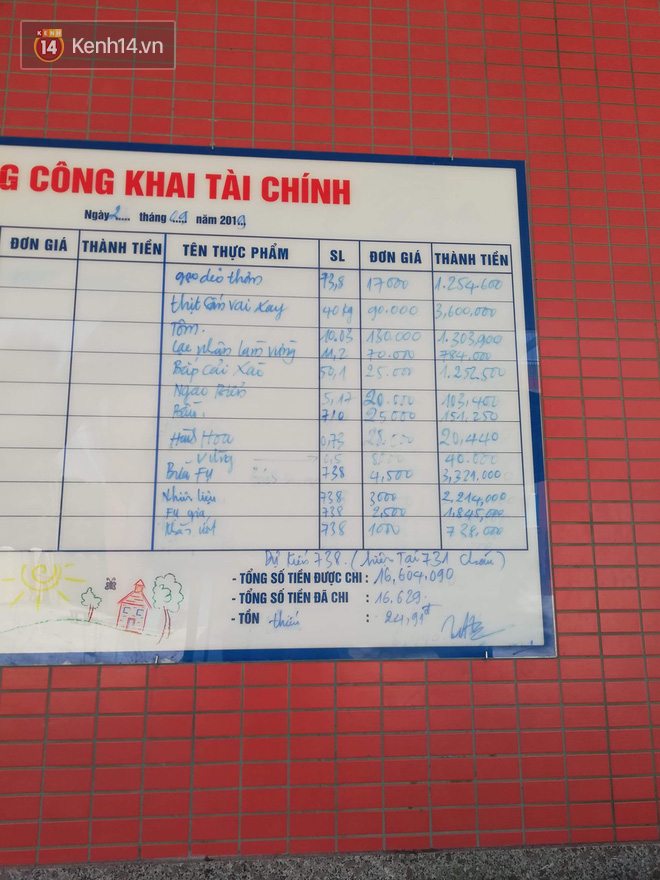 KENH 14 Kenh14.vn
G CÔNG KHAI TÀI CHÍNH
Ngày 2 tháng 9 năm 2019
ĐƠN GIÁ THÀNH TIỀN TÊN THỰC PHẨM SL ĐƠN GIÁ THÀNH TIỀN
gạo dẻo thơm 73,8 17000 1.254.600
thịt sấn vai xay 40kg 90.000 3,600,000
Tôm. 10.03 130.000 1.303,900
Lạc nhân làm vừng 11,2 70.000 784.000
Bắp cải xào 50,1 25.000 1.252,500
Ngao 5,17 20.000 103,400
25000 151.250
Hành Hoa 0,73 28.000 20,440
Vừng 0,5 40.000
738 4,500 3,321.000
Nhiên liệu 738 3000 2,214,000
Fụ gia 738 2,500 1,845,000
Khăn ướt 738 1000 738.000
Dự kiến 738. (hiện tại 731 cháu)
- TỔNG SỐ TIỀN ĐƯỢC CHI : 16,604,090
- TỔNG SỐ TIỀN ĐÃ CHI : 16.629
- TỒN thiếu : 24,91đ